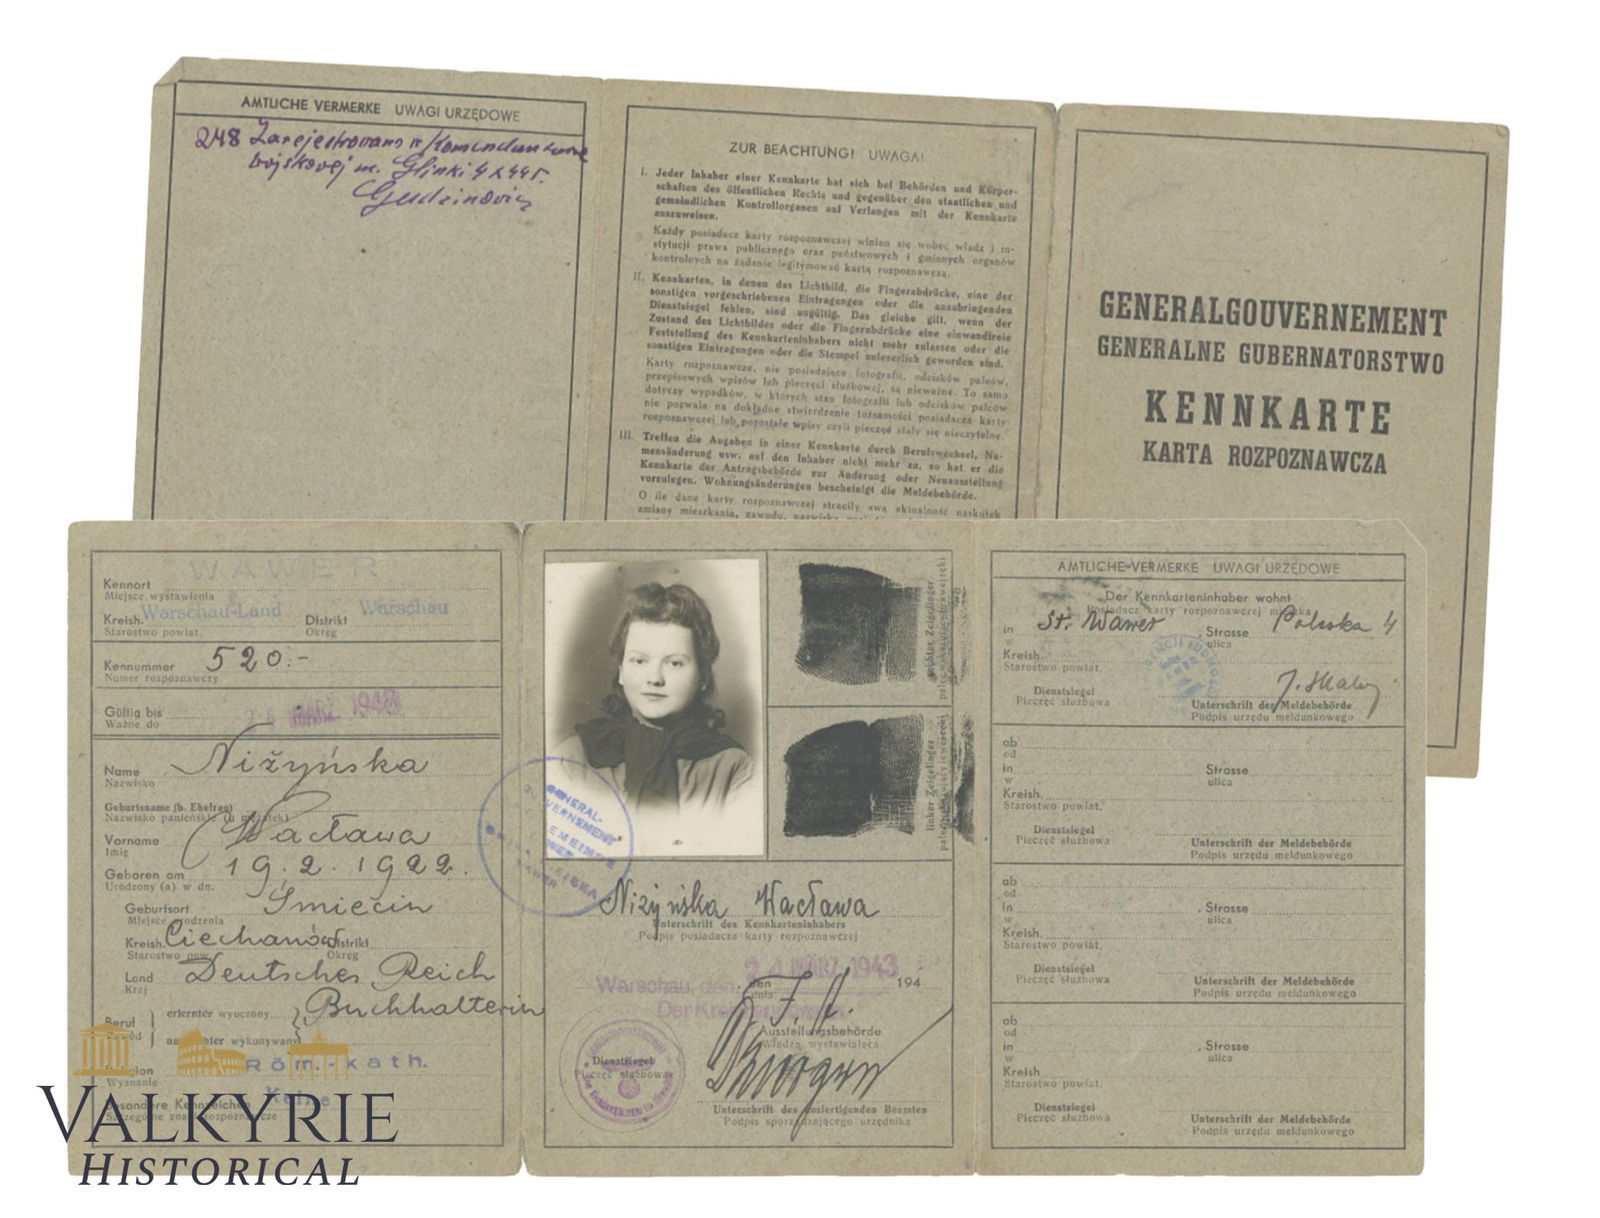 AMTLICHE VERMERKE UWAGI URZĘDOWE
248 Zarejestrowano w Komendanturze
wojskowej m. Glinki 4 X 44 r.
ZUR BEACHTUNG! UWAGA!
I. Jeder Inhaber einer Kennkarte hat sich bei Behörden und Körper-
schaften des öffentlichen Rechts und gegenüber den staatlichen und
gemeindlichen Kontrollorganen auf Verlangen mit der Kennkarte
auszuweisen.
Każdy posiadacz karty rozpoznawczej winien się wobec władz i in-
stytucji prawa publicznego oraz państwowych i gminnych organów
kontrolnych na żądanie legitymować kartą rozpoznawczą.
II. Kennkarten, in denen das Lichtbild, die Fingerabdrücke, eine der
sonstigen vorgeschriebenen Eintragungen oder die anzubringenden
Dienstsiegel fehlen, sind ungültig. Das gleiche gilt, wenn der
Zustand des Lichtbildes oder die Fingerabdrücke eine einwandfreie
Feststellung des Kennkarteninhabers nicht mehr zulassen oder die
sonstigen Eintragungen oder die Stempel unleserlich geworden sind.
Karty rozpoznawcze, nie posiadające fotografii, odcisków palców,
przepisowych wpisów lub pieczęci służbowej, są nieważne. To samo
dotyczy wypadków, w których stan fotografii lub odcisków palców
nie pozwala na dokładne stwierdzenie tożsamości posiadacza karty
rozpoznawczej lub pozostałe wpisy czyli pieczęć stały się nieczytelne.
III. Treffen die Angaben in einer Kennkarte durch Berufswechsel, Na-
mensänderung usw. auf den Inhaber nicht mehr zu, so hat er die
Kennkarte der Antragsbehörde zur Änderung oder Neuausstellung
vorzulegen. Wohnungsänderungen bescheinigt die Meldebehörde.
O ile dane karty rozpoznawczej straciły swą aktualność naskutek
zmiany mieszkania, zawodu, nazwiska
GENERALGOUVERNEMENT
GENERALNE GUBERNATORSTWO
KENNKARTE
KARTA ROZPOZNAWCZA
WAWER
Kennort
Miejsce wystawienia
Kreish. Warschau-Land Distrikt Warschau
Starostwo powiat. Okręg
Kennummer 520.-
Numer rozpoznawczy
Gültig bis 24 MÄRZ 1948
Ważne do
Name Niżyńska
Nazwisko
Geburtsname (b. Ehefrau)
Nazwisko panieńskie (u mężatek)
Vorname Wacława
Imię
Geboren am 19. 2. 1922.
Urodzony (a) w dn.
Geburtsort Śmiecin
Miejsce urodzenia
Kreish. Ciechanów Distrikt
Starostwo pow. Okręg
Land Deutsches Reich
Kraj
Beruf erlernter wyuczony Buchhalterin
wykonywany
Röm.-kath.
Wyznanie
Besondere Kennzeichen Keine
Szczególne znaki rozpoznawcze
rechter Zeigefinger
linker Zeigefinger
Niżyńska Wacława
Unterschrift des Kennkarteninhabers
Podpis posiadacza karty rozpoznawczej
24 MÄRZ 1943
Warschau, den den 194
dnia
Ausstellungsbehörde
Władza wystawiająca
Dienstsiegel
Pieczęć służbowa
Unterschrift des ausfertigenden Beamten
Podpis sporządzającego urzędnika
AMTLICHE VERMERKE UWAGI URZĘDOWE
Der Kennkarteninhaber wohnt
Posiadacz karty rozpoznawczej mieszka
in St. Wawer, Strasse Polska 4
w ulica
Kreish.
Starostwo powiat.
Dienstsiegel
Pieczęć służbowa
Unterschrift der Meldebehörde
Podpis urzędu meldunkowego
ab
od
in , Strasse
w ulica
Kreish.
Starostwo powiat.
Dienstsiegel
Pieczęć służbowa
Unterschrift der Meldebehörde
Podpis urzędu meldunkowego
ab
od
in , Strasse
w ulica
Kreish.
Starostwo powiat.
Dienstsiegel
Pieczęć służbowa
Unterschrift der Meldebehörde
Podpis urzędu meldunkowego
ab
od
in , Strasse
w ulica
Kreish
Starostwo powiat.
Dienstsiegel
Pieczęć służbowa
Unterschrift der Meldebehörde
Podpis urzędu meldunkowego
VALKYRIE
HISTORICAL